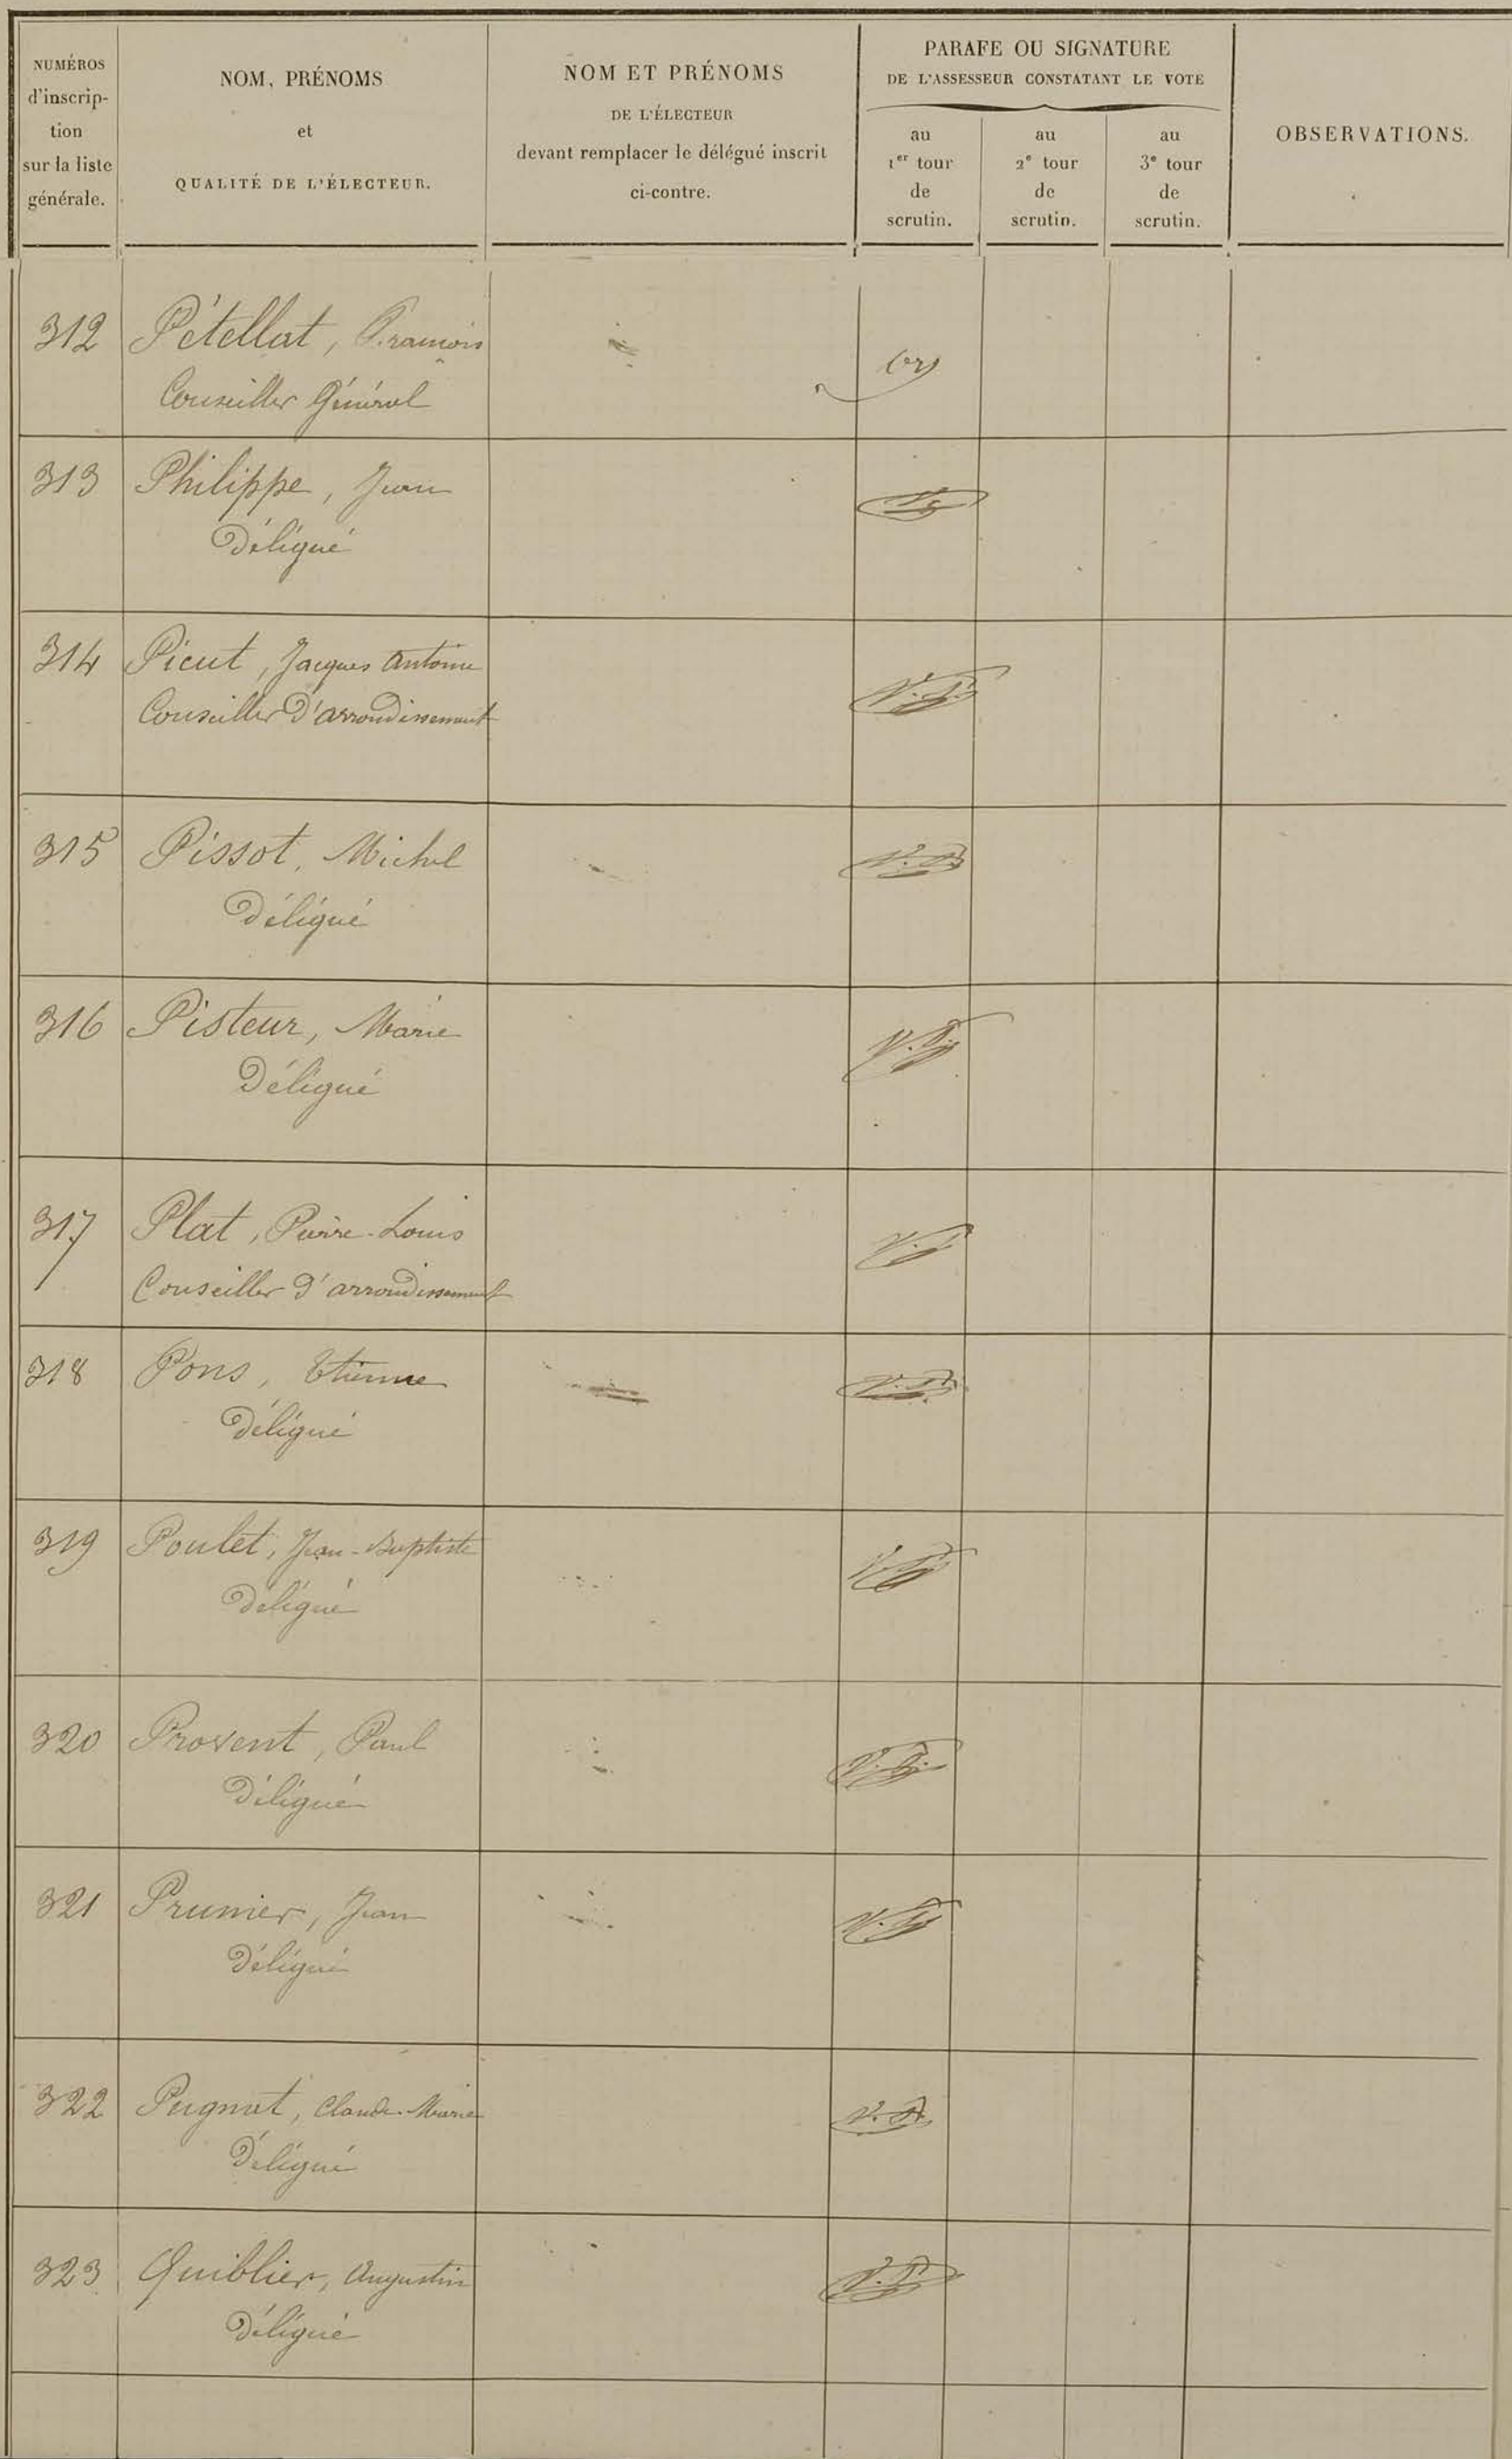 NUMÉROS
d'inscrip-
tion
sur la liste
générale.
NOM, PRÉNOMS
et
QUALITÉ DE L'ÉLECTEUR.
NOM ET PRÉNOMS
DE L'ÉLECTEUR
devant remplacer le délégué inscrit
ci-contre.
PARAFE OU SIGNATURE
DE L'ASSESSEUR CONSTATANT LE VOTE
au
1er tour
de
scrutin.
au
2e tour
de
scrutin.
au
3e tour
de
scrutin.
OBSERVATIONS.
312 Pétellat, François
Conseiller Général
313 Philippe, Jean
Délégué
314 Picut, Jacques Antoine
Conseiller d'arrondissement
315 Pissot, Michel
Délégué
316 Pisteur, Marie
Délégué
317 Plat, Pierre-Louis
Conseiller d'arrondissement
318 Pons, Etienne
Délégué
319 Poulet, Jean-Baptiste
Délégué
320 Provent, Paul
Délégué
321 Prunier, Jean
Délégué
322 Pugnat, Claude-Marie
Délégué
323 Quiblier, Augustin
Délégué